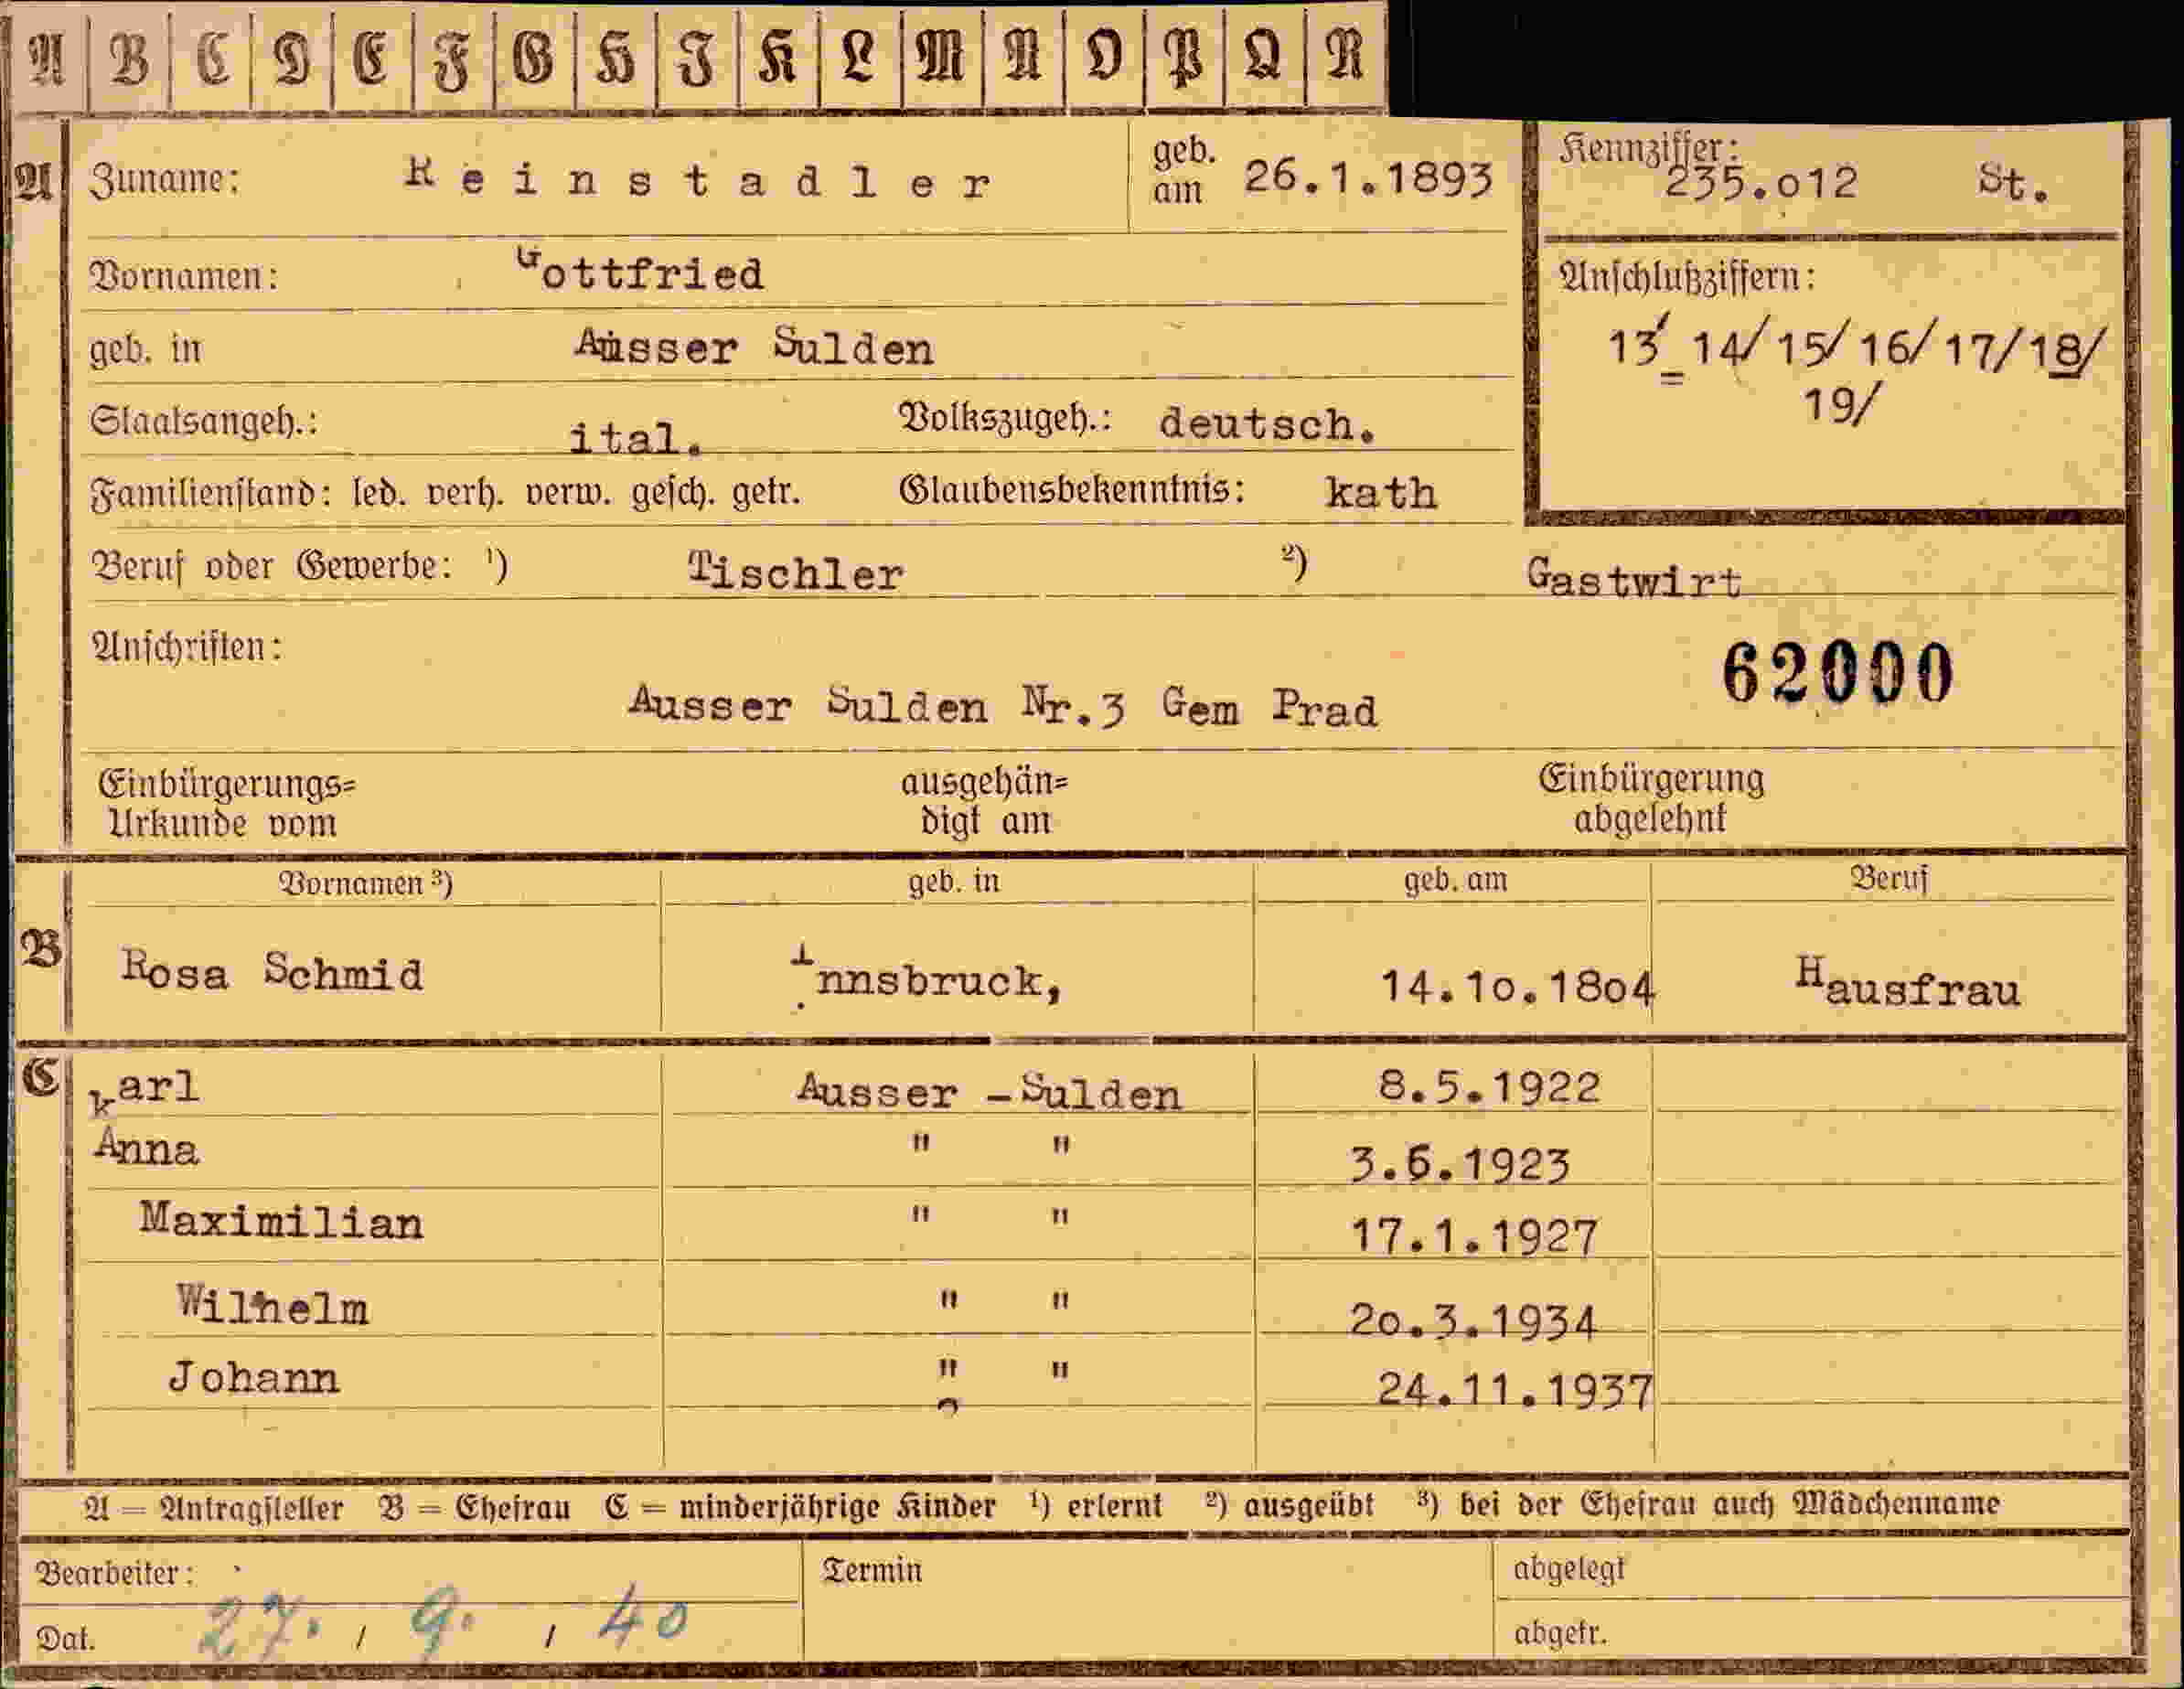 A B C D E F G H I K L M N O P Q R
A Zuname: Reinstadler geb. am 26.1.1893 Kennziffer: 235.o12 St.
Vornamen: Gottfried
Anschlußziffern:
geb. in Ausser Sulden
13/ 14/ 15/ 16/ 17/ 18/
19/
Staatsangeh.: ital. Volkszugeh.: deutsch.
Familienstand: led. verh. verw. gesch. getr. Glaubensbekenntnis: kath
Beruf oder Gewerbe: ¹) Tischler ²) Gastwirt
Anschriften:
62000
Ausser Sulden Nr.3 Gem Prad
Einbürgerungs= Urkunde vom ausgehän= digt am Einbürgerung abgelehnt
Vornamen ³) geb. in geb. am Beruf
B Rosa Schmid Innsbruck, 14.1o.18o4 Hausfrau
C karl Ausser -Sulden 8.5.1922
Anna " " 3.6.1923
Maximilian " " 17.1.1927
Wilhelm " " 2o.3.1934
Johann " " 24.11.1937
A = Antragsteller B = Ehefrau C = minderjährige Kinder ¹) erlernt ²) ausgeübt ³) bei der Ehefrau auch Mädchenname
Bearbeiter: Termin abgelegt
Dat. 27. / 9. / 40 abgetr.